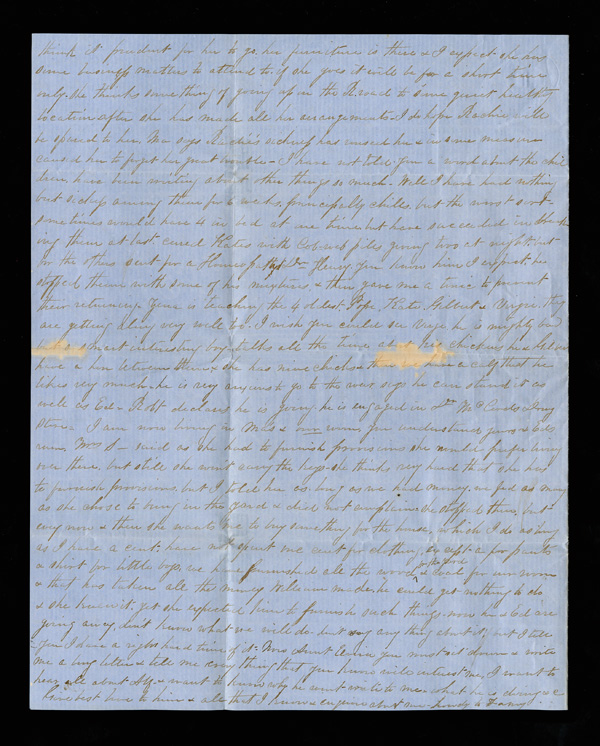 think it prudent for her to go. her furniture is there & I expect she has
some business matters to attend to. if she goes it will be for a short time
only. She thinks something of going up on the R.road to some quiet healthy
location after she has made all her arrangements. I do hope Rachie will
be spared to her. Ma says Rachie's mischief has amused her & in some measure
caused her to forget her great trouble - I have not told you a word about the chil
dren, have been writing about other things so much. Well I have had nothing
but sickness among them for 6 weeks, principally chills, but the worst sort.
sometimes would have 4 in bed at one time but have succeeded in
ing them at last cured Kates with Cobweb pills giving two at night but
for the others sent for a Dr. Henry, you know him I expect. he
stopped them with some of his & then gave me a tonic to prevent
their returning. is teaching the 4 oldest Pope, Kate, Gilbert & Virgie. they
are getting along very well too. I wish you could see Virgie he is mighty
smart interesting boy. talks all the time about his chickens he & Gilbert
have a hen between them & she has nine chicks & have a calf that he
likes very much. he is very anxious to go to the war says he can stand it as
well as Ed - Robt declares he is going he is engaged in Dr McCords drug
store. I am now living in Ma's & our room you understand yours & Eds
room. Mrs S - said as she had to furnish provisions she would prefer living
over there, but still she won't carry the keys. she thinks very hard that she has
to furnish provisions but I told her as long as we had money we fed as many
as she chose to bring in the yard & did not complain. she stopped then, but
every now & then she wants me to buy something for the house, which I do as long
as I have a cent. have not spent one cent for clothing, except a few pants
& shirts for little boys. we have furnished all the wood & coal for our room
& that has taken all the money William made. he could get nothing to do
& she knew it. yet she expected him to furnish such things. now he & Ed are
going away, don't know what we will do. dont say any thing about it, but I tell
you I have a right hard time of it. Now Aunt you must sit down & write
me a long letter & tell me every thing that you know will interest me. I want to
hear all about Alf. & want to know why he wont write to me. what he is doing &c
Give best love to him & all that I know & enquire about me. howdy to Fanny